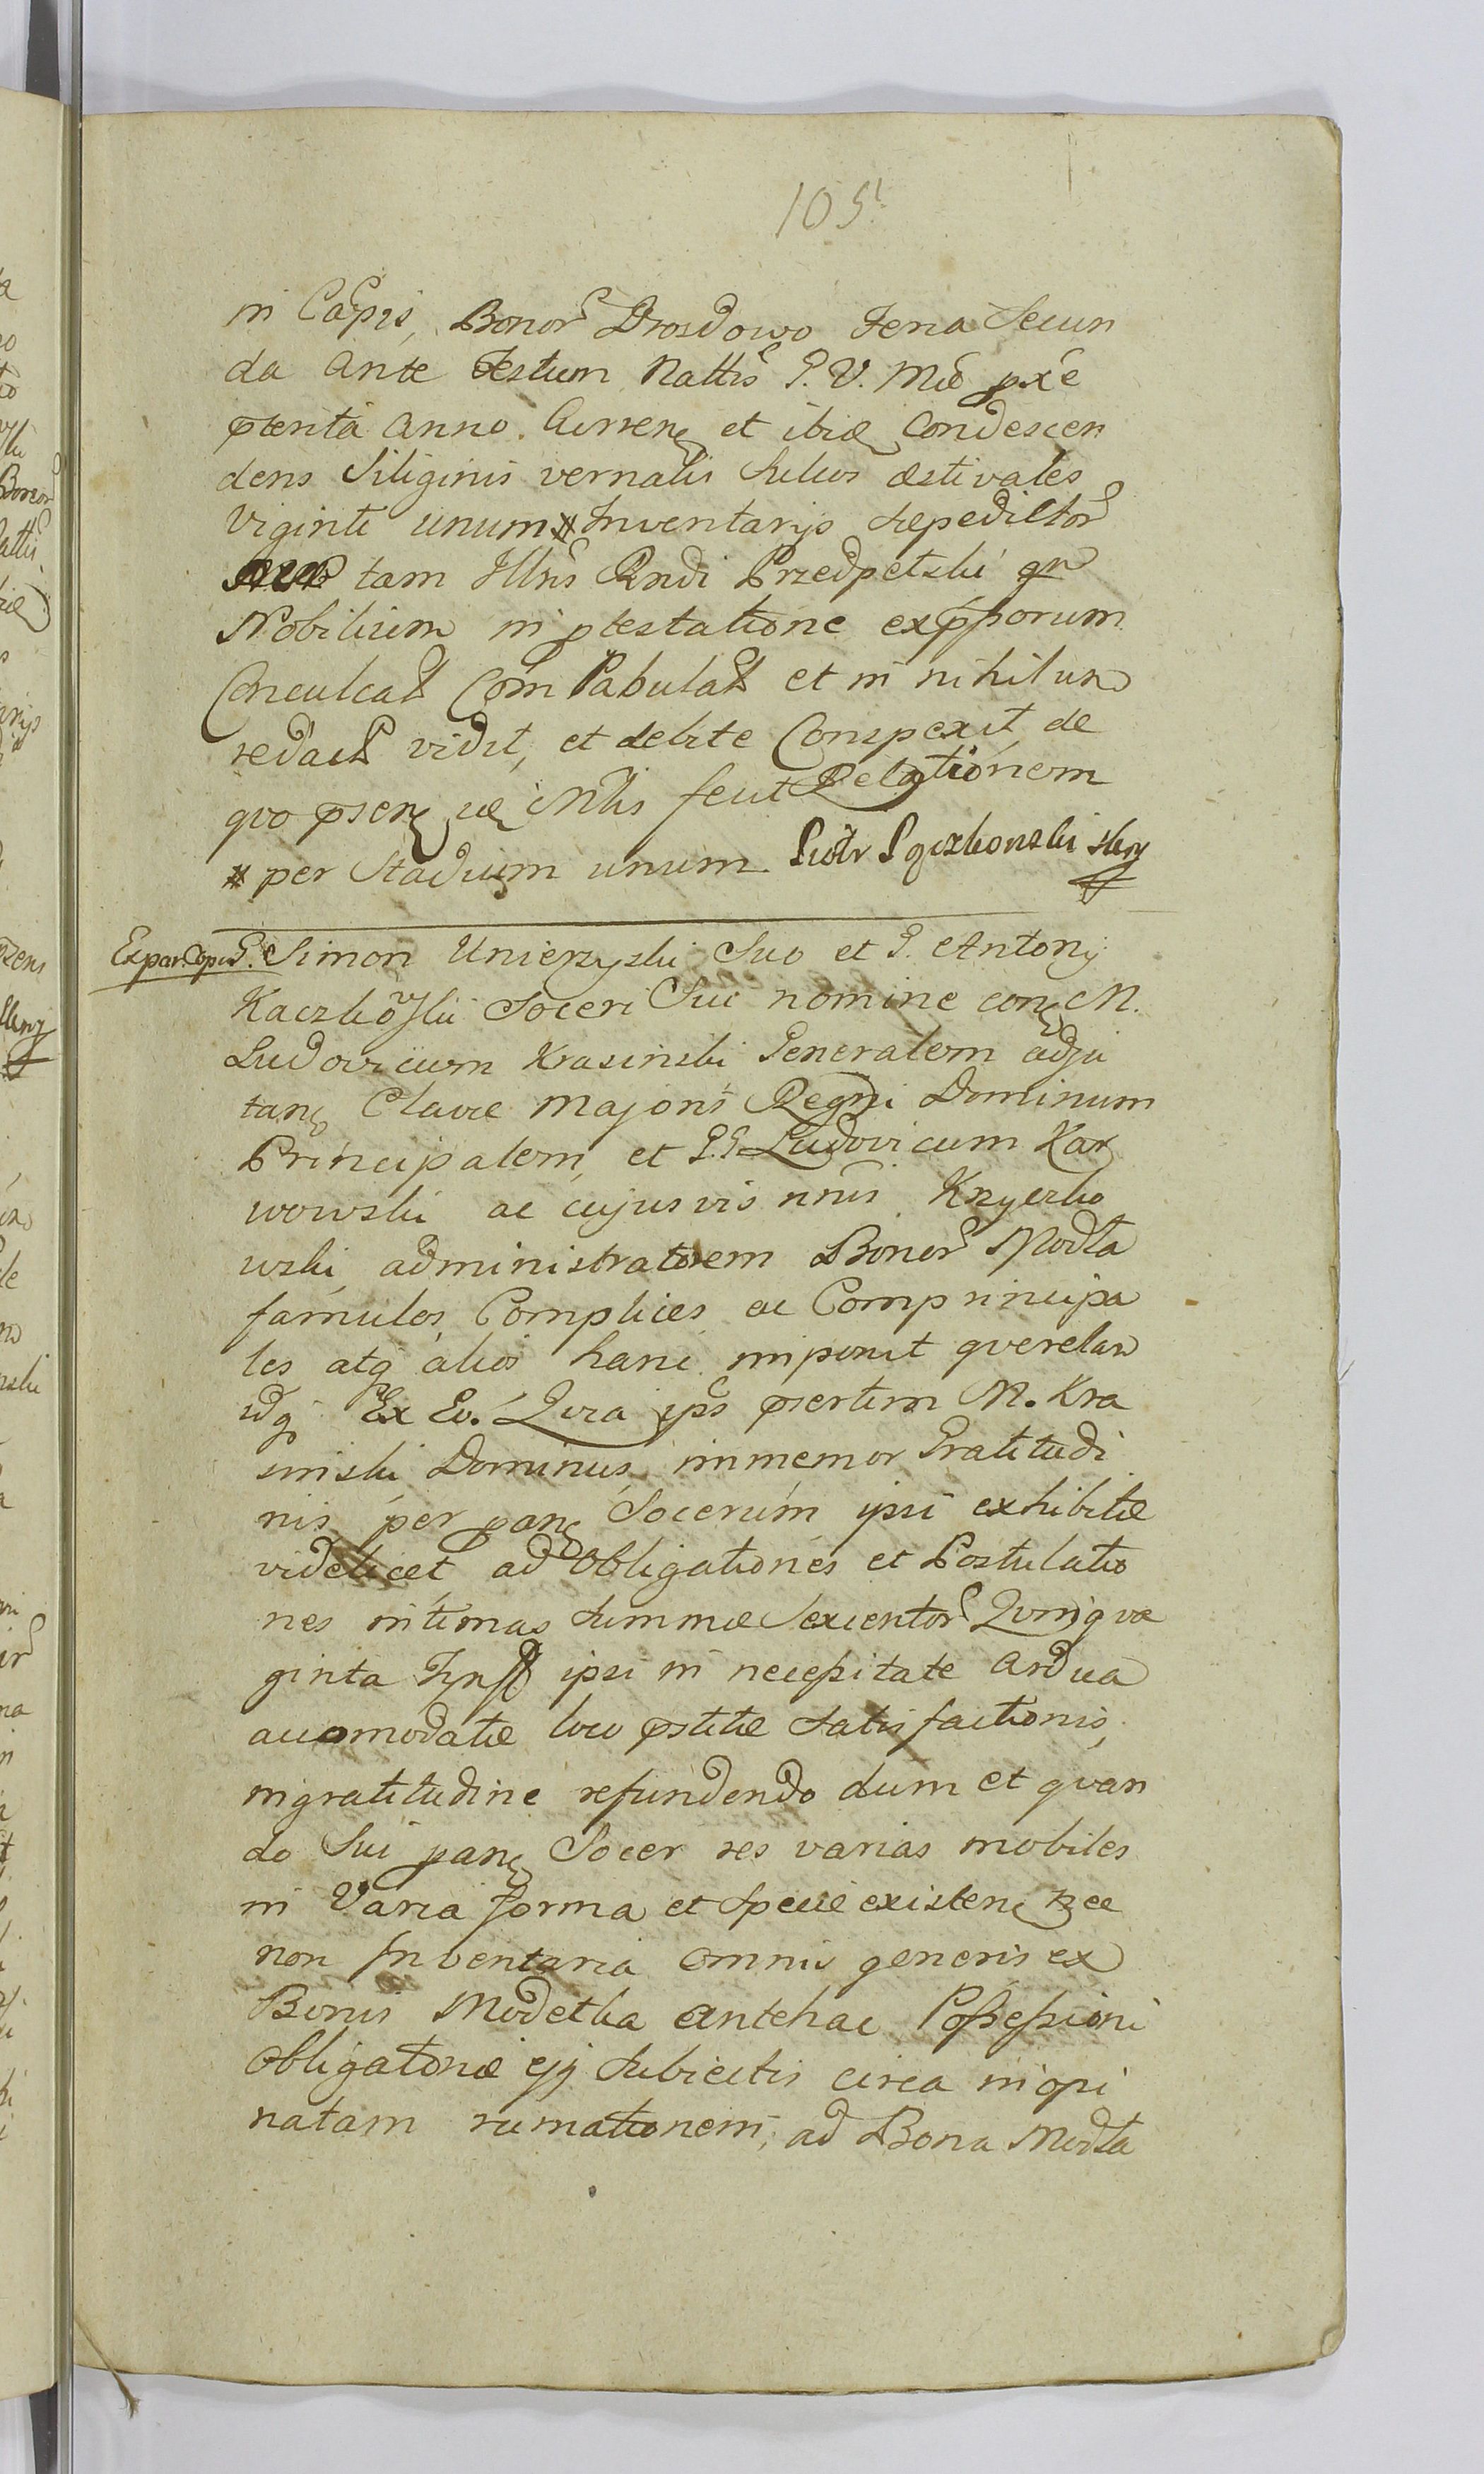 105
in Capis, Bonor Drosdowo Feria Secun
da ante Festum Nattis G. V. Mæ pxe
pterita anno Curren et ibiæ Condescen
dens Siliginis vernalis Sulcos æstivales
Viginti unum # Inventarijs Sepedictor
tam Illris Rndi Przedpełski qn
Nobilium in ptestatione expssorum
Conculcat Com Pabulat et in nihilum
redact vidit, et debite Conspexit de
quo psen uæ iNtis fecit Relationem
# per Stadium unum. Piotr
Expar Copia G. Simon Unierzyski Suo et G. Antonij
Kaczkowski Soceri Sui nomine con M.
Ludovicum Krasinski Generalem adju
tan Clavæ Majoris Regni Dominum
Principalem, et G.G. Ludovicum Kar
wowski ac cujusvis nnis Krzyczko
wski administratorem Bonor Modła
famulos, Complices ac Comprincipa
les atq alios hanc imponit querelam
idq Ex Eo. Qvia ips psertim M. Kra
sinski Dominus, immemor Gratitudi
nis per pan Socerum ipsi exhibitæ
videlicet ad Obligationes et Postulatio
nes intimas Summæ Sexcentor Qvinqva
ginta ipsi in necessitate ardua
accomodatæ loco pstitæ Satisfactionis,
ingratitudine refundendo dum et qvan
do Sui pan Socer res varias mobiles
in Varia forma et Specie existen nec
non Inventaria omnis generis ex
Bonis Modełka antehac Possessioni
Obligatoriæ ejj Subiectis circa inopi
natam rumationem, ad Bona Modła